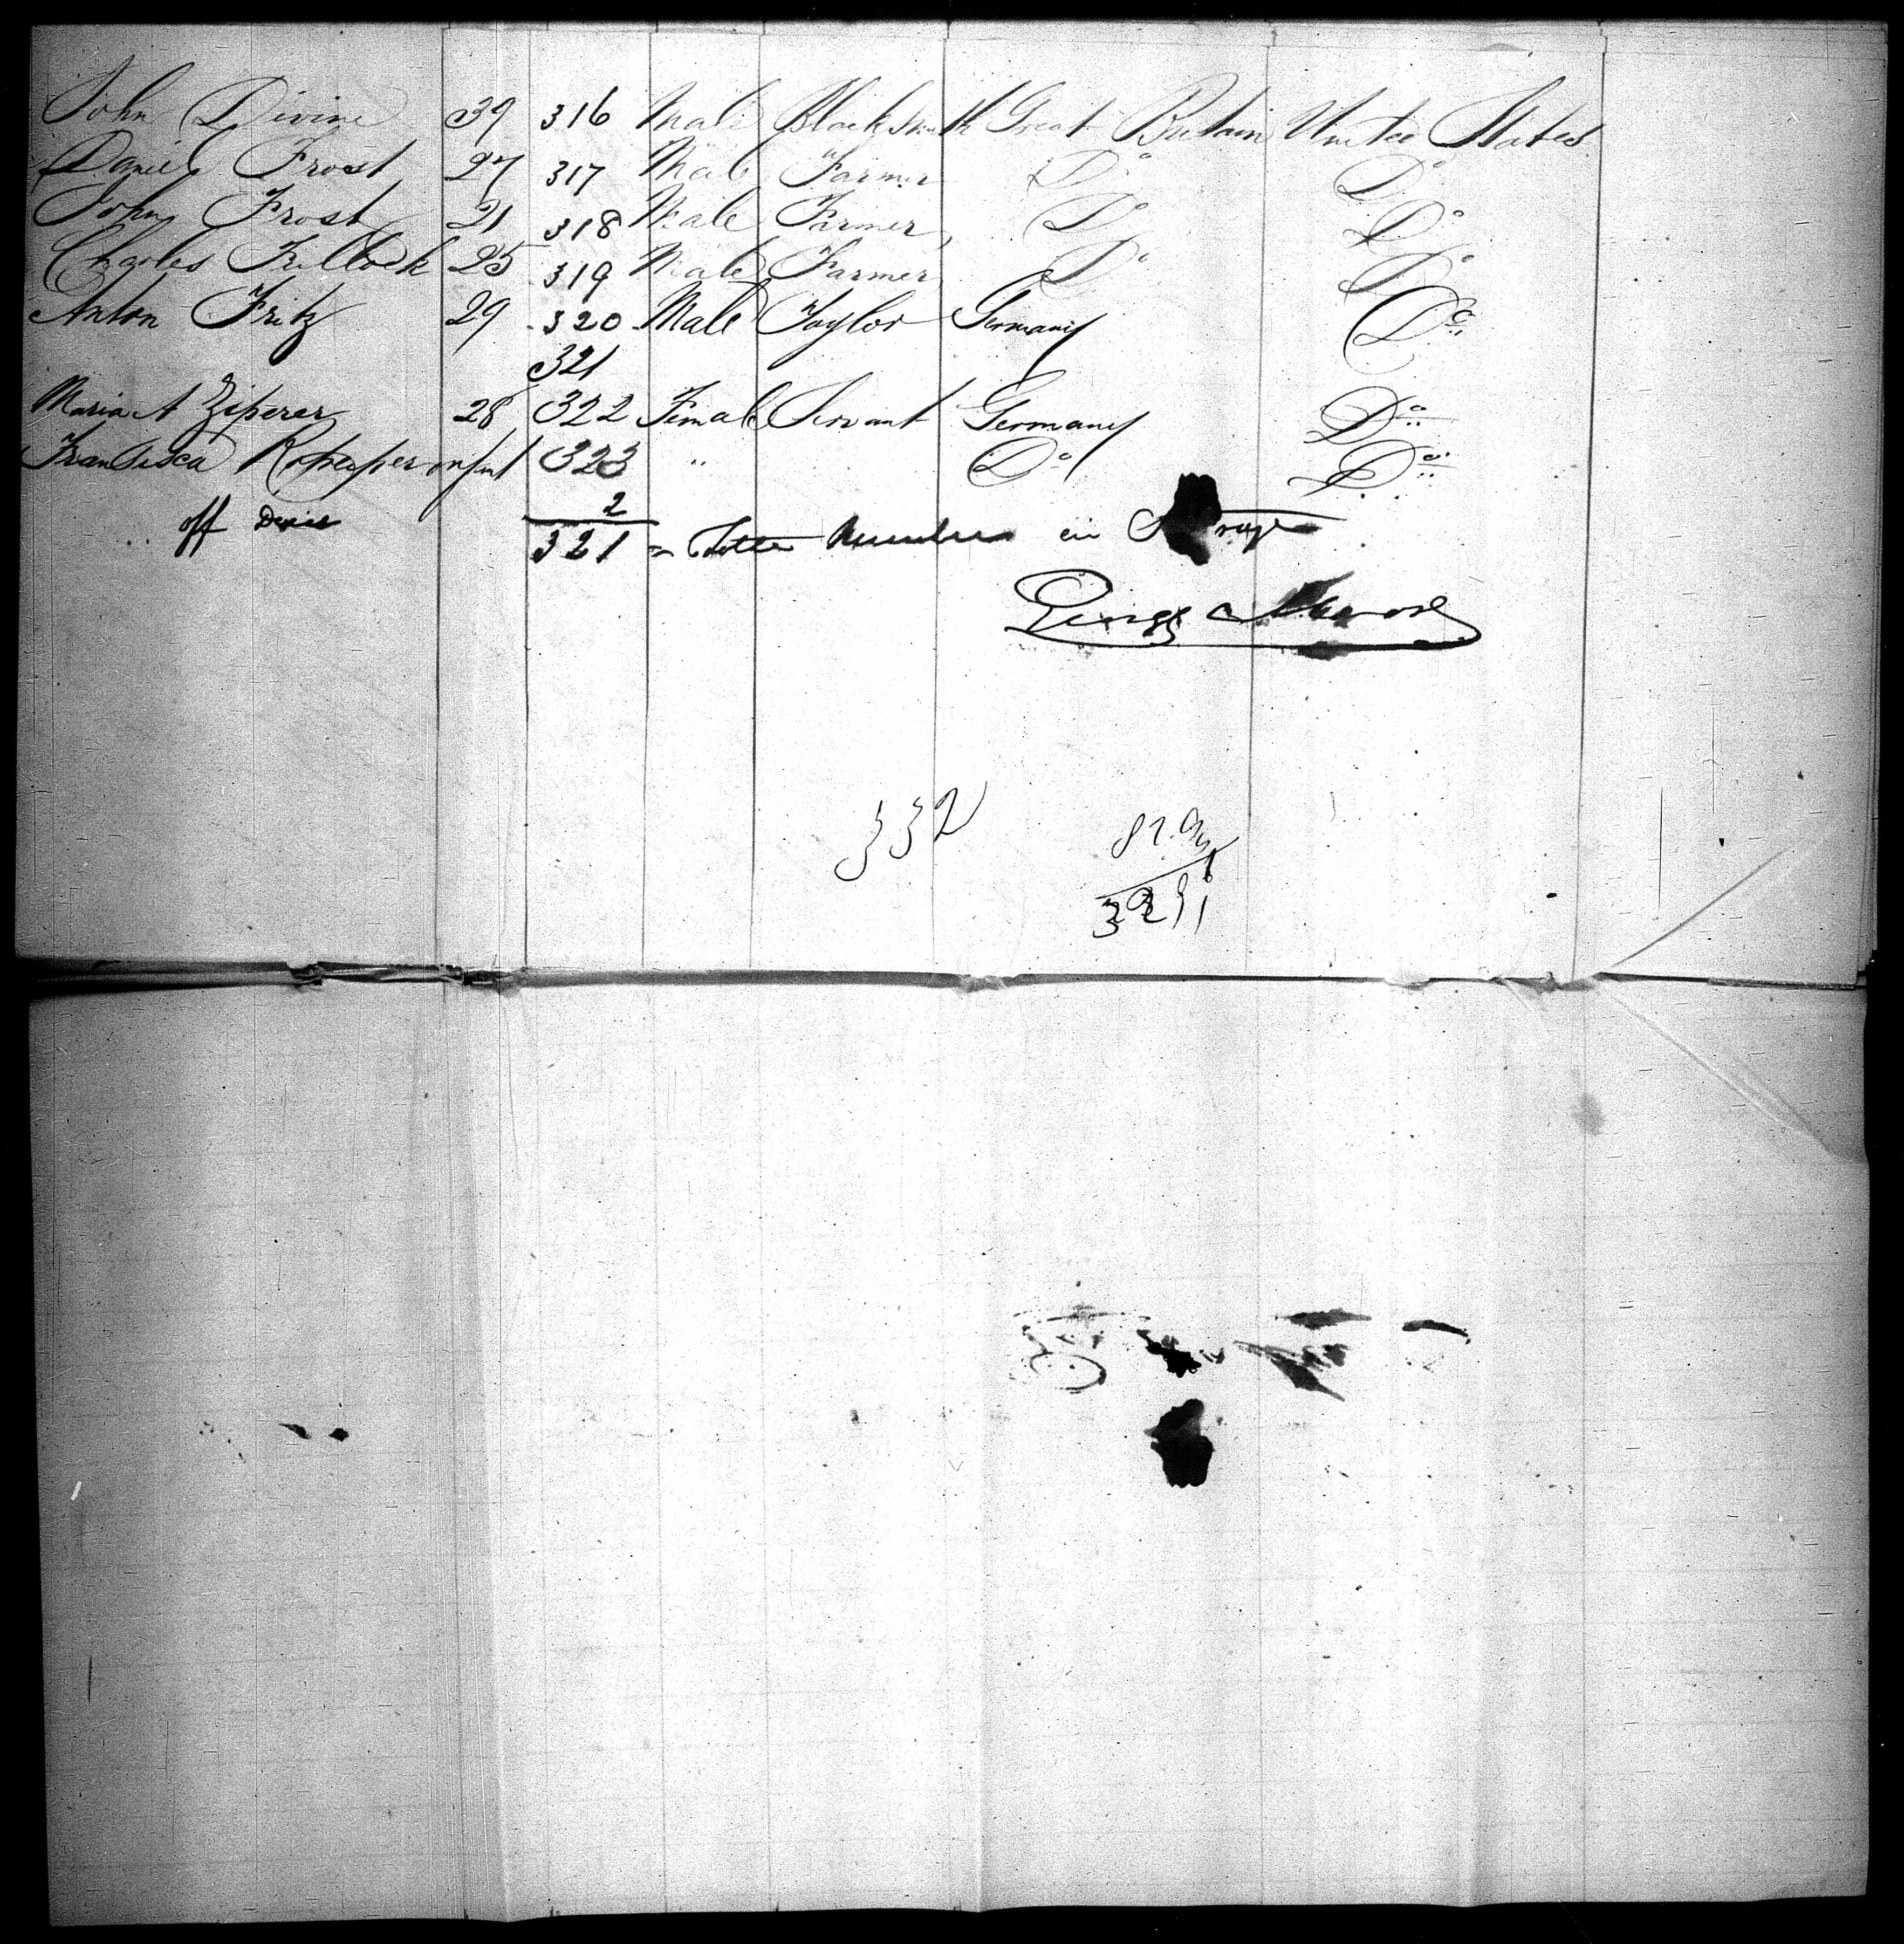 John Divine 39 316 Male Blacksmith Great Britain United States
Daniel Frost 27 317 Male Farmer Do Do
John Frost 21 318 Male Farmer Do Do
Charles 25 319 Male Farmer Do Do
Anton Fritz 29 320 Male Taylor Germany Do
321
Maria A Ziperer 28 322 Female Servant Germany Do
Fransisca infant 323 " Do Do
off 2
321 = Number in
332